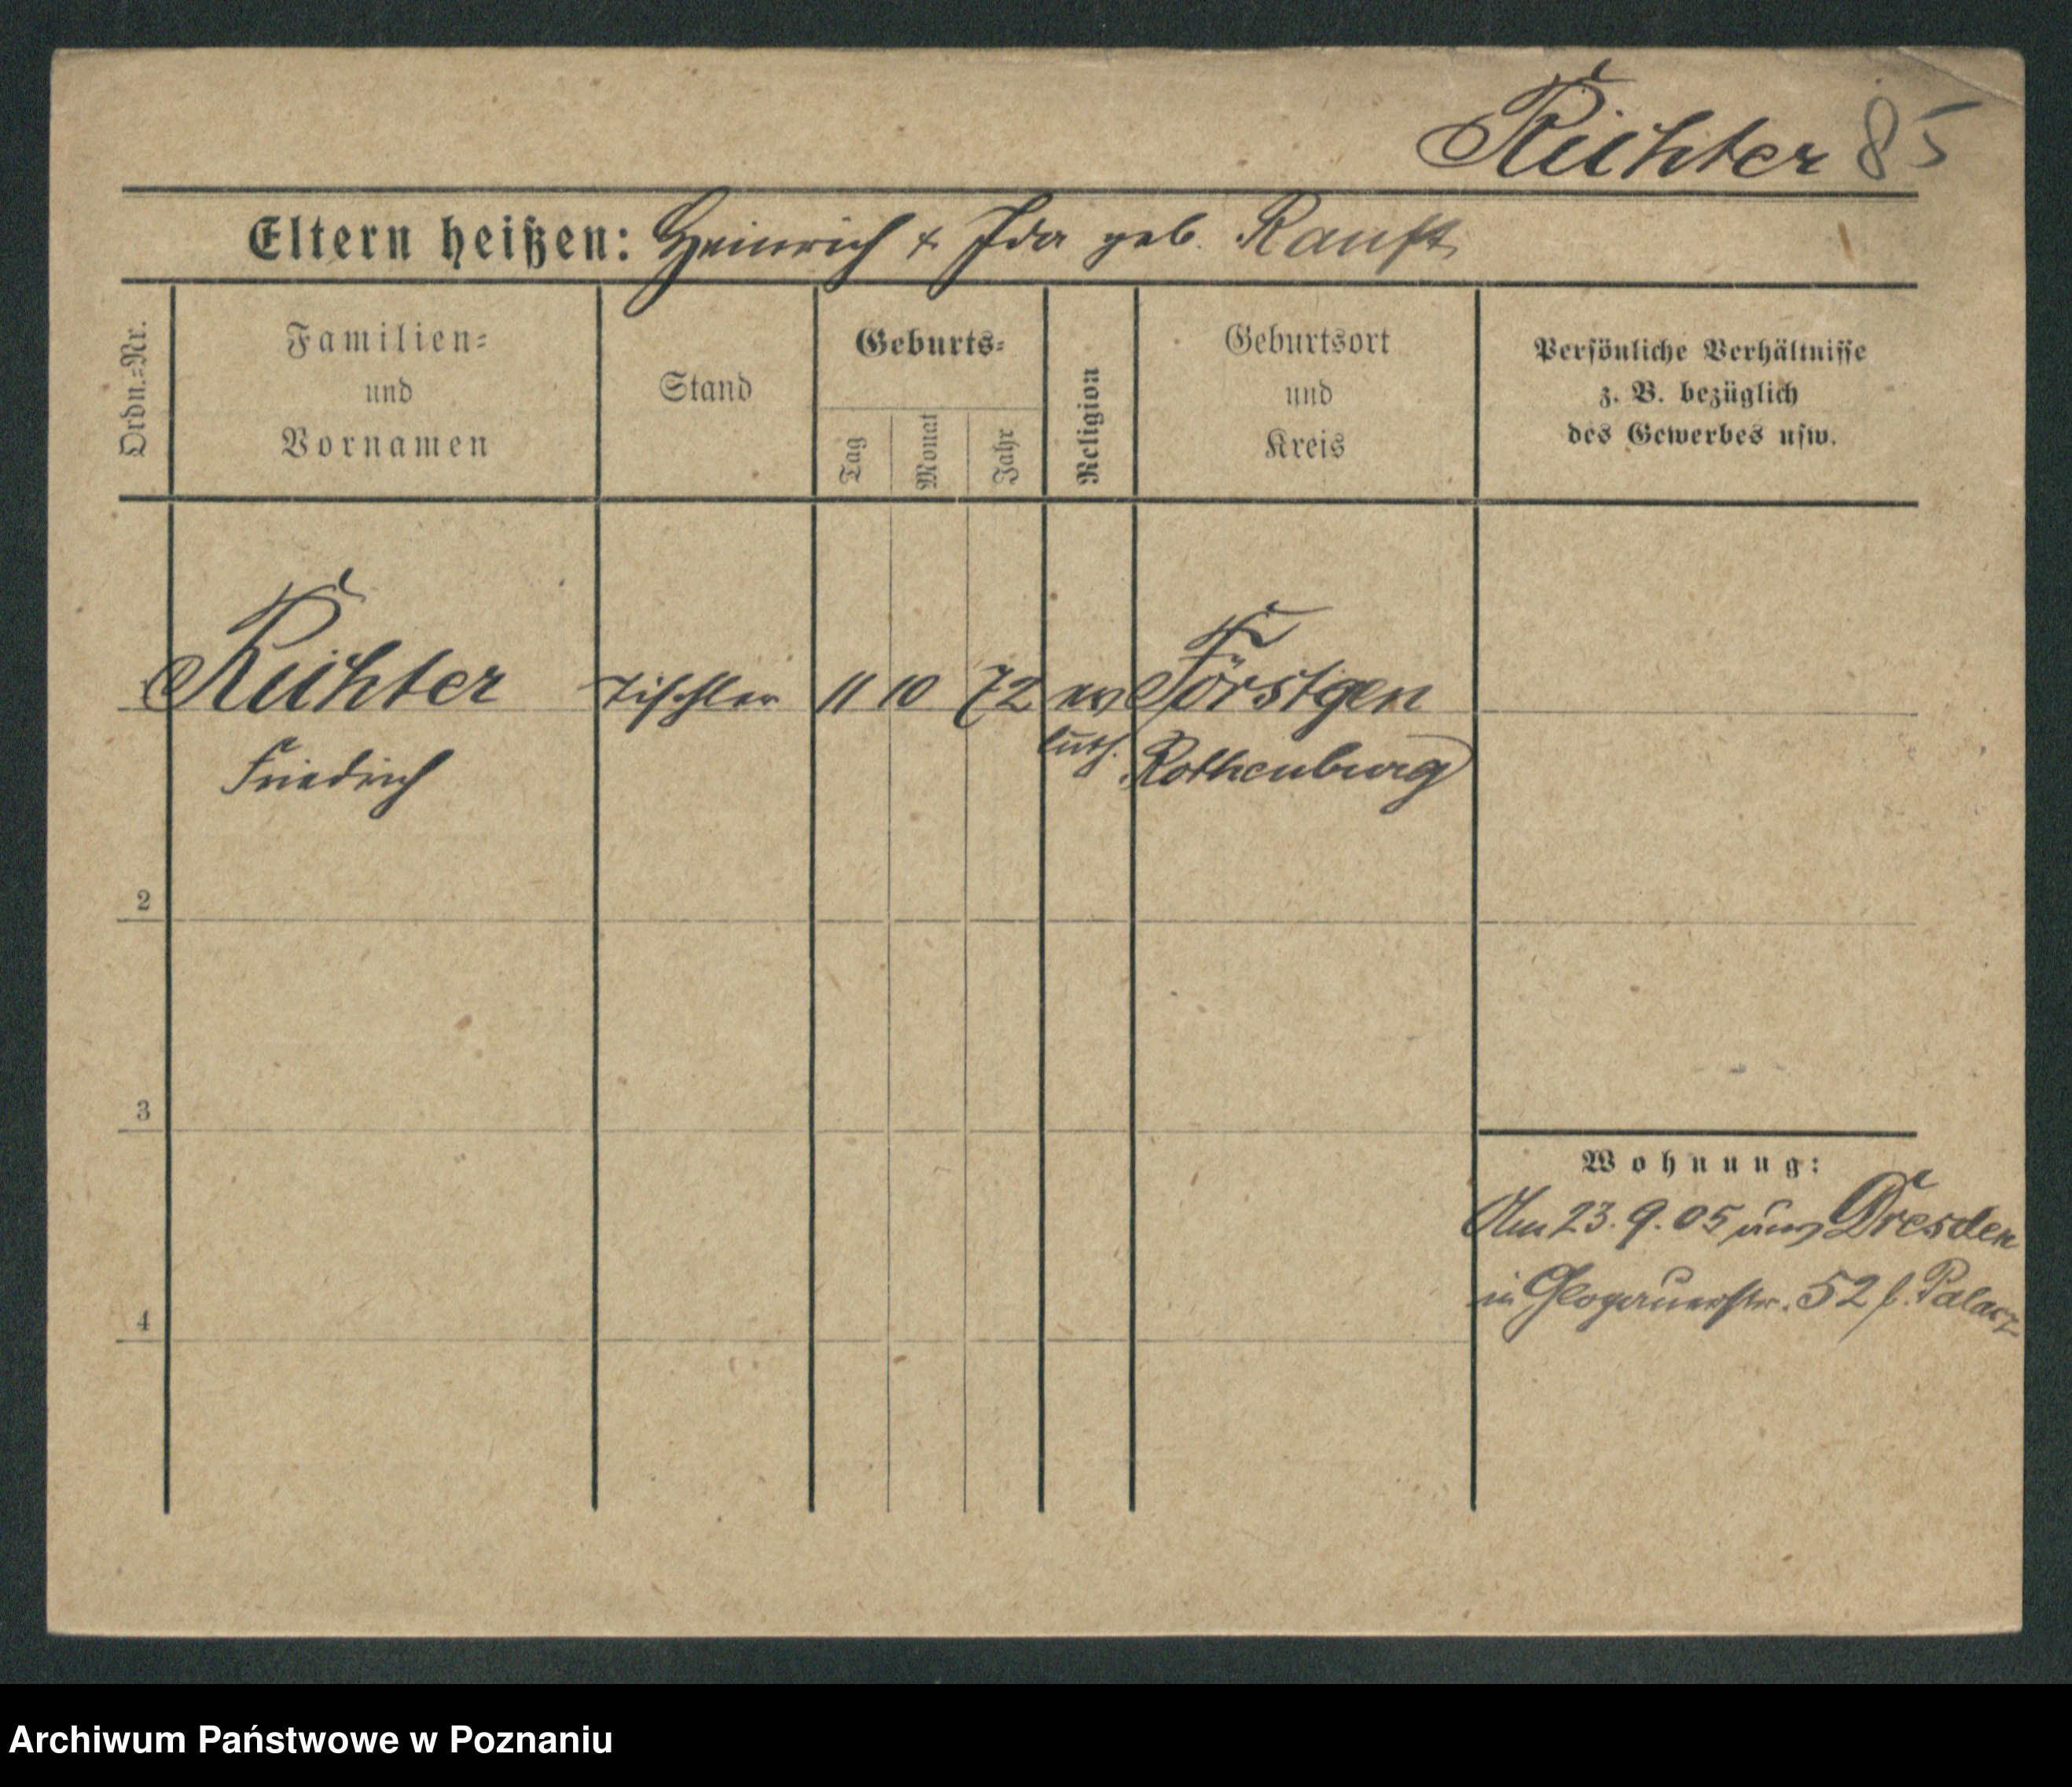 Richter 85
Eltern heißen: Heinrich & Ida geb. Ranft
Ordn.-Nr.
Familien-
und
Vornamen
Stand
Geburts-
Tag
Monat
Jahr
Religion
Geburtsort
und
Kreis
Persönliche Verhältnisse
z. B. bezüglich
des Gewerbes usw.
Richter Tischler 11 10 72 ev Förstgen
Friedrich luth. Rothenburg
2
3
4
Wohnung:
Am 23.9.05 aus Dresden
in Glogauerstr. 52 b. Palacz
Archiwum Państwowe w Poznaniu